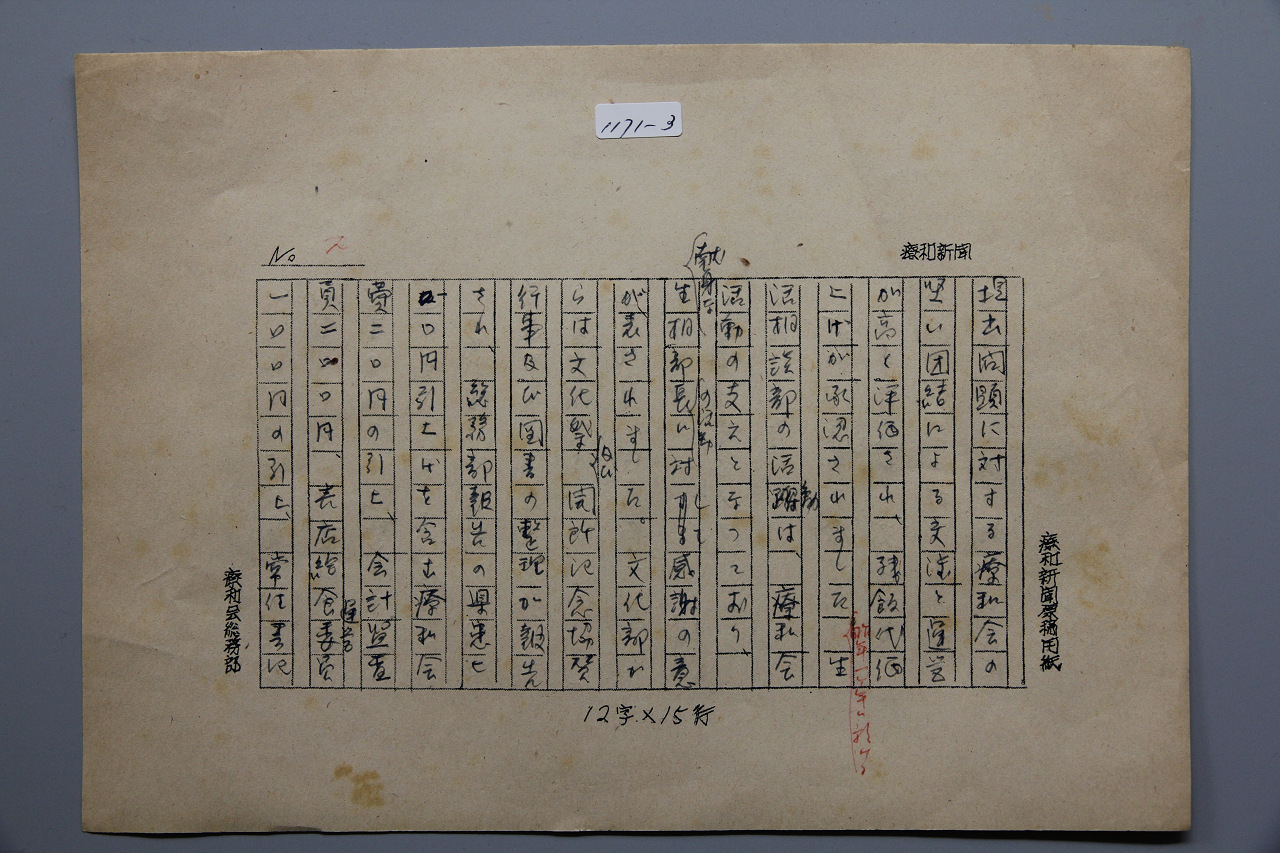 1171-3
療和新聞
No 2
提出問題に対する療和会の
堅い団結による交渉と運営
が高く評価され、残飯代価
上げが承認されました 生
活相談部の活動は、療和会
活動の支えとなっており、
生相部長に対して感謝の意
が表されました。文化部か
らは文化祭 開所記念協賛
行事及び図書の整理が報告
され、総務部報告の県患七
〇円引上げを含む療和会
費二〇円の引上、会計監査
員二〇〇円、売店給食運営委員
一〇〇円の引上、常任書記
献身な
の活動
12字×15行
療和新聞原稿用紙
療和会総務部